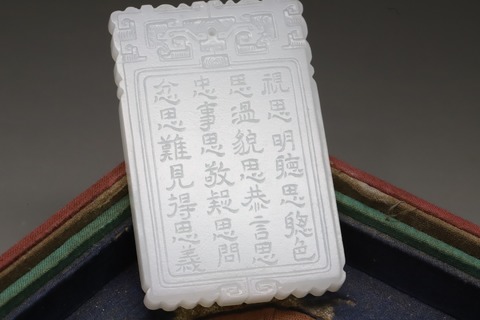 視思明聽思聰色
思溫貌思恭言思
忠事思敬疑思問
忿思難見得思義